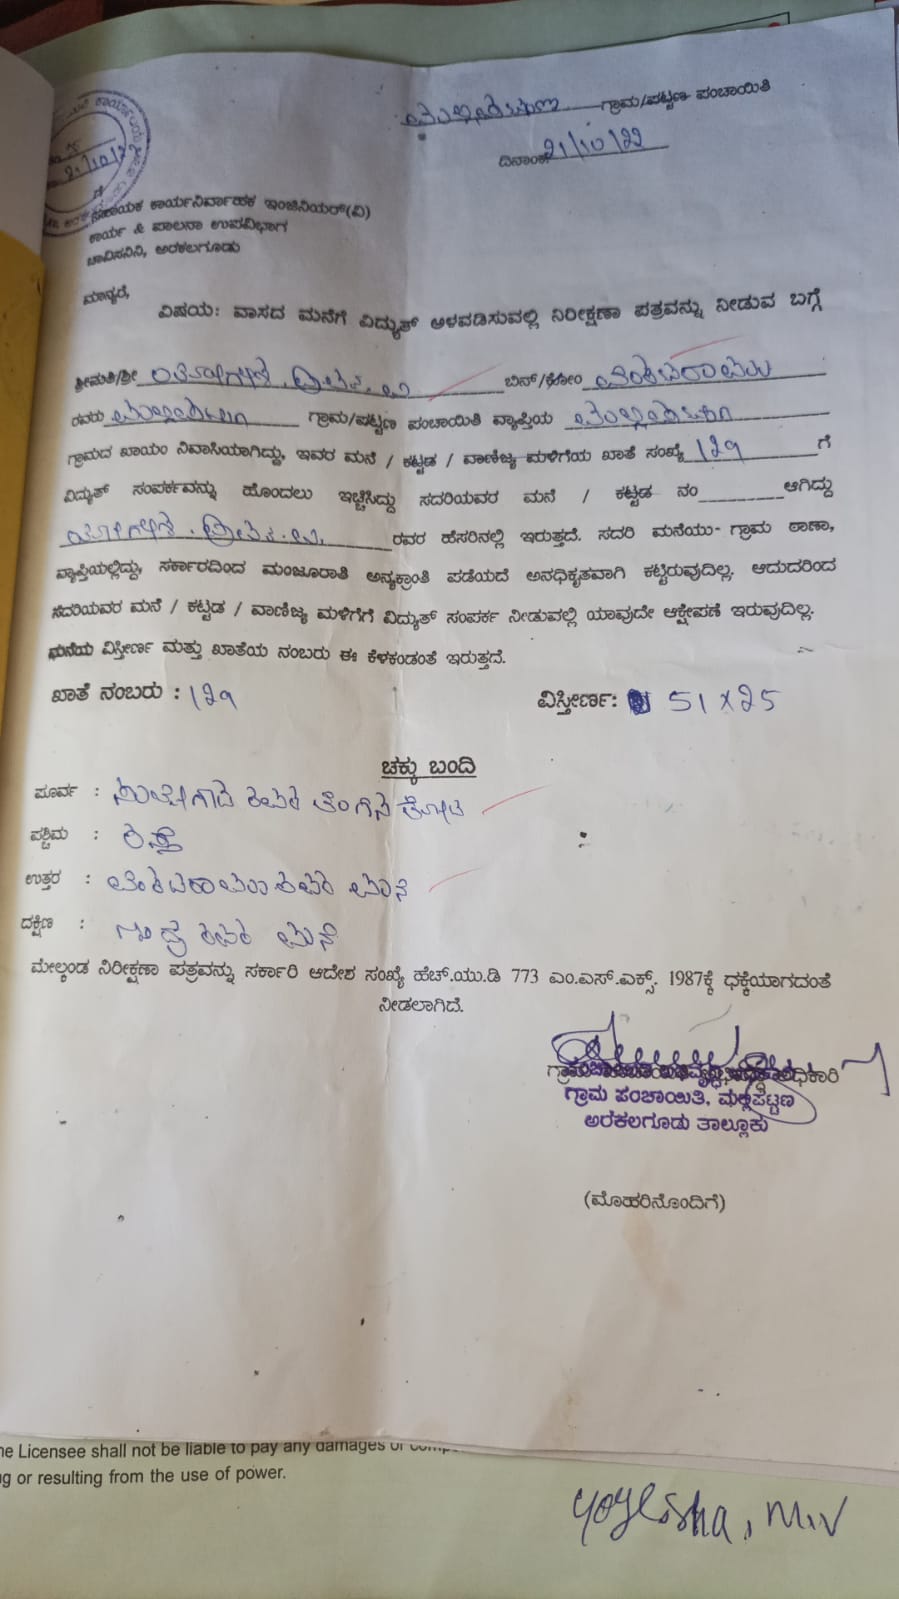 ಗ್ರಾಮ/ಪಟ್ಟಣ ಪಂಚಾಯಿತಿ
ದಿನಾಂಕ: 21/10/22
21/10/2
ಗೆ
ಸಹಾಯಕ ಕಾರ್ಯನಿರ್ವಾಹಕ ಇಂಜಿನಿಯರ್(ವಿ)
ಕಾರ್ಯ & ಪಾಲನಾ ಉಪವಿಭಾಗ
ಚಾವಿಸನಿನಿ, ಅರಕಲಗೂಡು
ಮಾನ್ಯರೆ,
ವಿಷಯ: ವಾಸದ ಮನೆಗೆ ವಿದ್ಯುತ್ ಅಳವಡಿಸುವಲ್ಲಿ ನಿರೀಕ್ಷಣಾ ಪತ್ರವನ್ನು ನೀಡುವ ಬಗ್ಗೆ
ಶ್ರೀಮತಿ/ಶ್ರೀ ಬಿನ್/ಕೋಂ ವೆಂಕಟರಾಮಯ
ರವರು ಗ್ರಾಮ/ಪಟ್ಟಣ ಪಂಚಾಯಿತಿ ವ್ಯಾಪ್ತಿಯ
ಗ್ರಾಮದ ಖಾಯಂ ನಿವಾಸಿಯಾಗಿದ್ದು, ಇವರ ಮನೆ / ಕಟ್ಟಡ / ವಾಣಿಜ್ಯ ಮಳಿಗೆಯ ಖಾತೆ ಸಂಖ್ಯೆ 129 ಗೆ
ವಿದ್ಯುತ್ ಸಂಪರ್ಕವನ್ನು ಹೊಂದಲು ಇಚ್ಚಿಸಿದ್ದು ಸದರಿಯವರ ಮನೆ / ಕಟ್ಟಡ ನಂ ಆಗಿದ್ದು
ರವರ ಹೆಸರಿನಲ್ಲಿ ಇರುತ್ತದೆ. ಸದರಿ ಮನೆಯು- ಗ್ರಾಮ ಠಾಣಾ,
ವ್ಯಾಪ್ತಿಯಲ್ಲಿದ್ದು, ಸರ್ಕಾರದಿಂದ ಮಂಜೂರಾತಿ ಅನ್ಯಕ್ರಾಂತಿ ಪಡೆಯದೆ ಅನಧಿಕೃತವಾಗಿ ಕಟ್ಟಿರುವುದಿಲ್ಲ. ಆದುದರಿಂದ
ಸದರಿಯವರ ಮನೆ / ಕಟ್ಟಡ / ವಾಣಿಜ್ಯ ಮಳಿಗೆಗೆ ವಿದ್ಯುತ್ ಸಂಪರ್ಕ ನೀಡುವಲ್ಲಿ ಯಾವುದೇ ಆಕ್ಷೇಪಣೆ ಇರುವುದಿಲ್ಲ.
ಮನೆಯ ವಿಸ್ತೀರ್ಣ ಮತ್ತು ಖಾತೆಯ ನಂಬರು ಈ ಕೆಳಕಂಡಂತೆ ಇರುತ್ತದೆ.
ಖಾತೆ ನಂಬರು : 129 ವಿಸ್ತೀರ್ಣ: 51 x 25
ಚಕ್ಕು ಬಂದಿ
ಪೂರ್ವ : ರವರ ತೆಂಗಿನ ತೋಟ
ಪಶ್ಚಿಮ : ರಸ್ತೆ
ಉತ್ತರ : ವೆಂಕಟರಾಮಯ ರವರ ಮನೆ
ದಕ್ಷಿಣ : ರವರ ಮನೆ
ಮೇಲ್ಕಂಡ ನಿರೀಕ್ಷಣಾ ಪತ್ರವನ್ನು ಸರ್ಕಾರಿ ಆದೇಶ ಸಂಖ್ಯೆ ಹೆಚ್.ಯು.ಡಿ 773 ಎಂ.ಎಸ್.ಎಕ್ಸ್. 1987ಕ್ಕೆ ಧಕ್ಕೆಯಾಗದಂತೆ
ನೀಡಲಾಗಿದೆ.
ಗ್ರಾಮ ಪಂಚಾಯಿತಿ, ಮಲ್ಲಿಪಟ್ಟಣ
ಅರಕಲಗೂಡು ತಾಲ್ಲೂಕು
(ಮೊಹರಿನೊಂದಿಗೆ)
Licensee shall not be liable to pay any damages or
or resulting from the use of power.
Yogesha, M.V